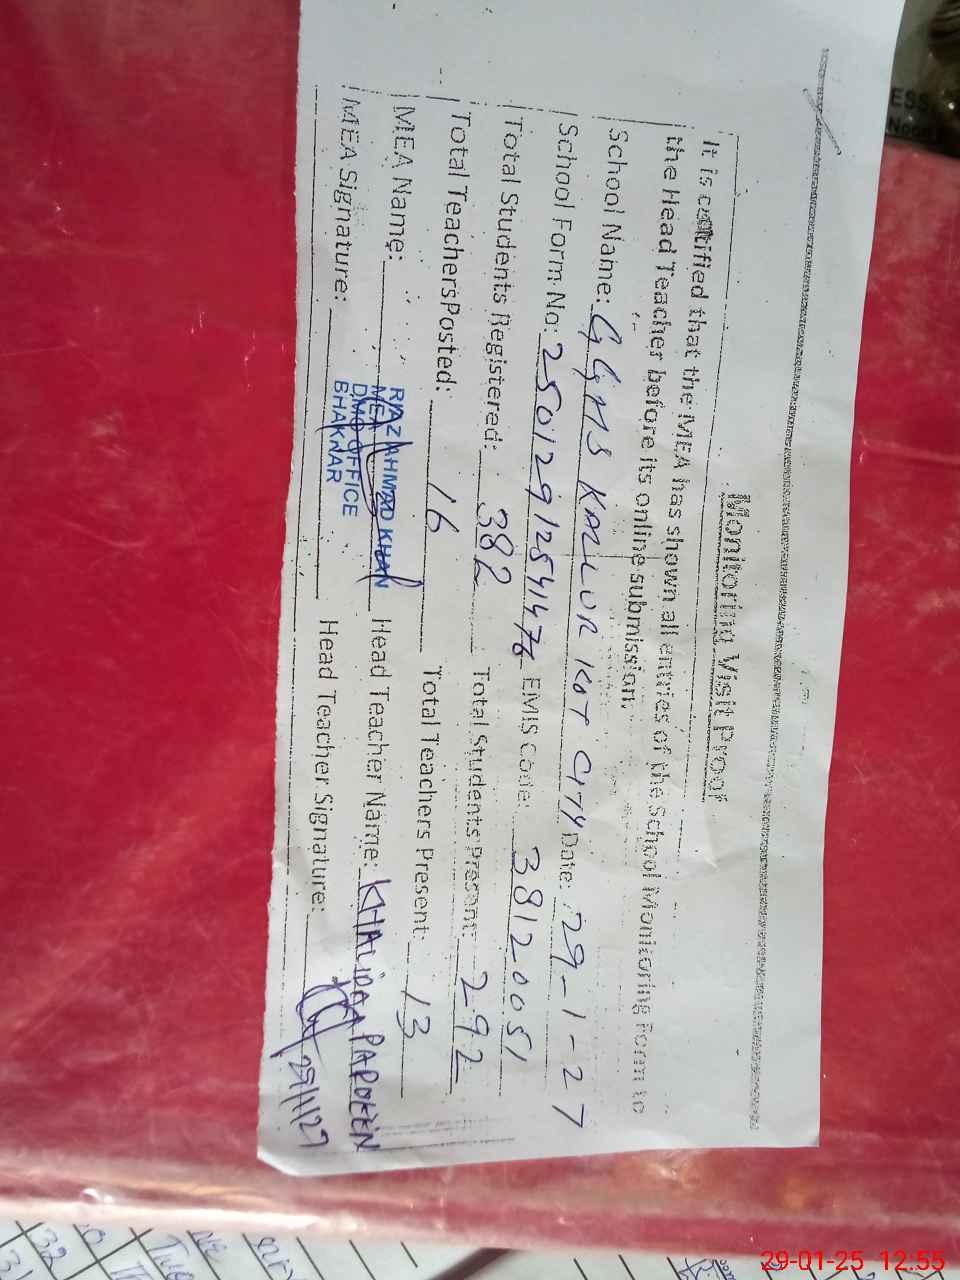 Monitoring Visit Proof
It is certified that the MEA has shown all entries of the School Monitoring Form to
the Head Teacher before its online submission.
School Name: GGHS KALLUR KOT CITY Date: 29-1-27
School Form No: 25012912541476 EMIS Code: 38120051
Total Students Registered: 382 Total Students Present: 292
Total Teachers Posted: 16 Total Teachers Present: 13
MEA Name: RIAZ AHMAD KHAN Head Teacher Name: KHALIDA PARVEEN
MEA
DMO OFFICE
BHAKKAR
MEA Signature: Head Teacher Signature: 29/1/27
ESS
Noon
32
31
29-01-25 12:55